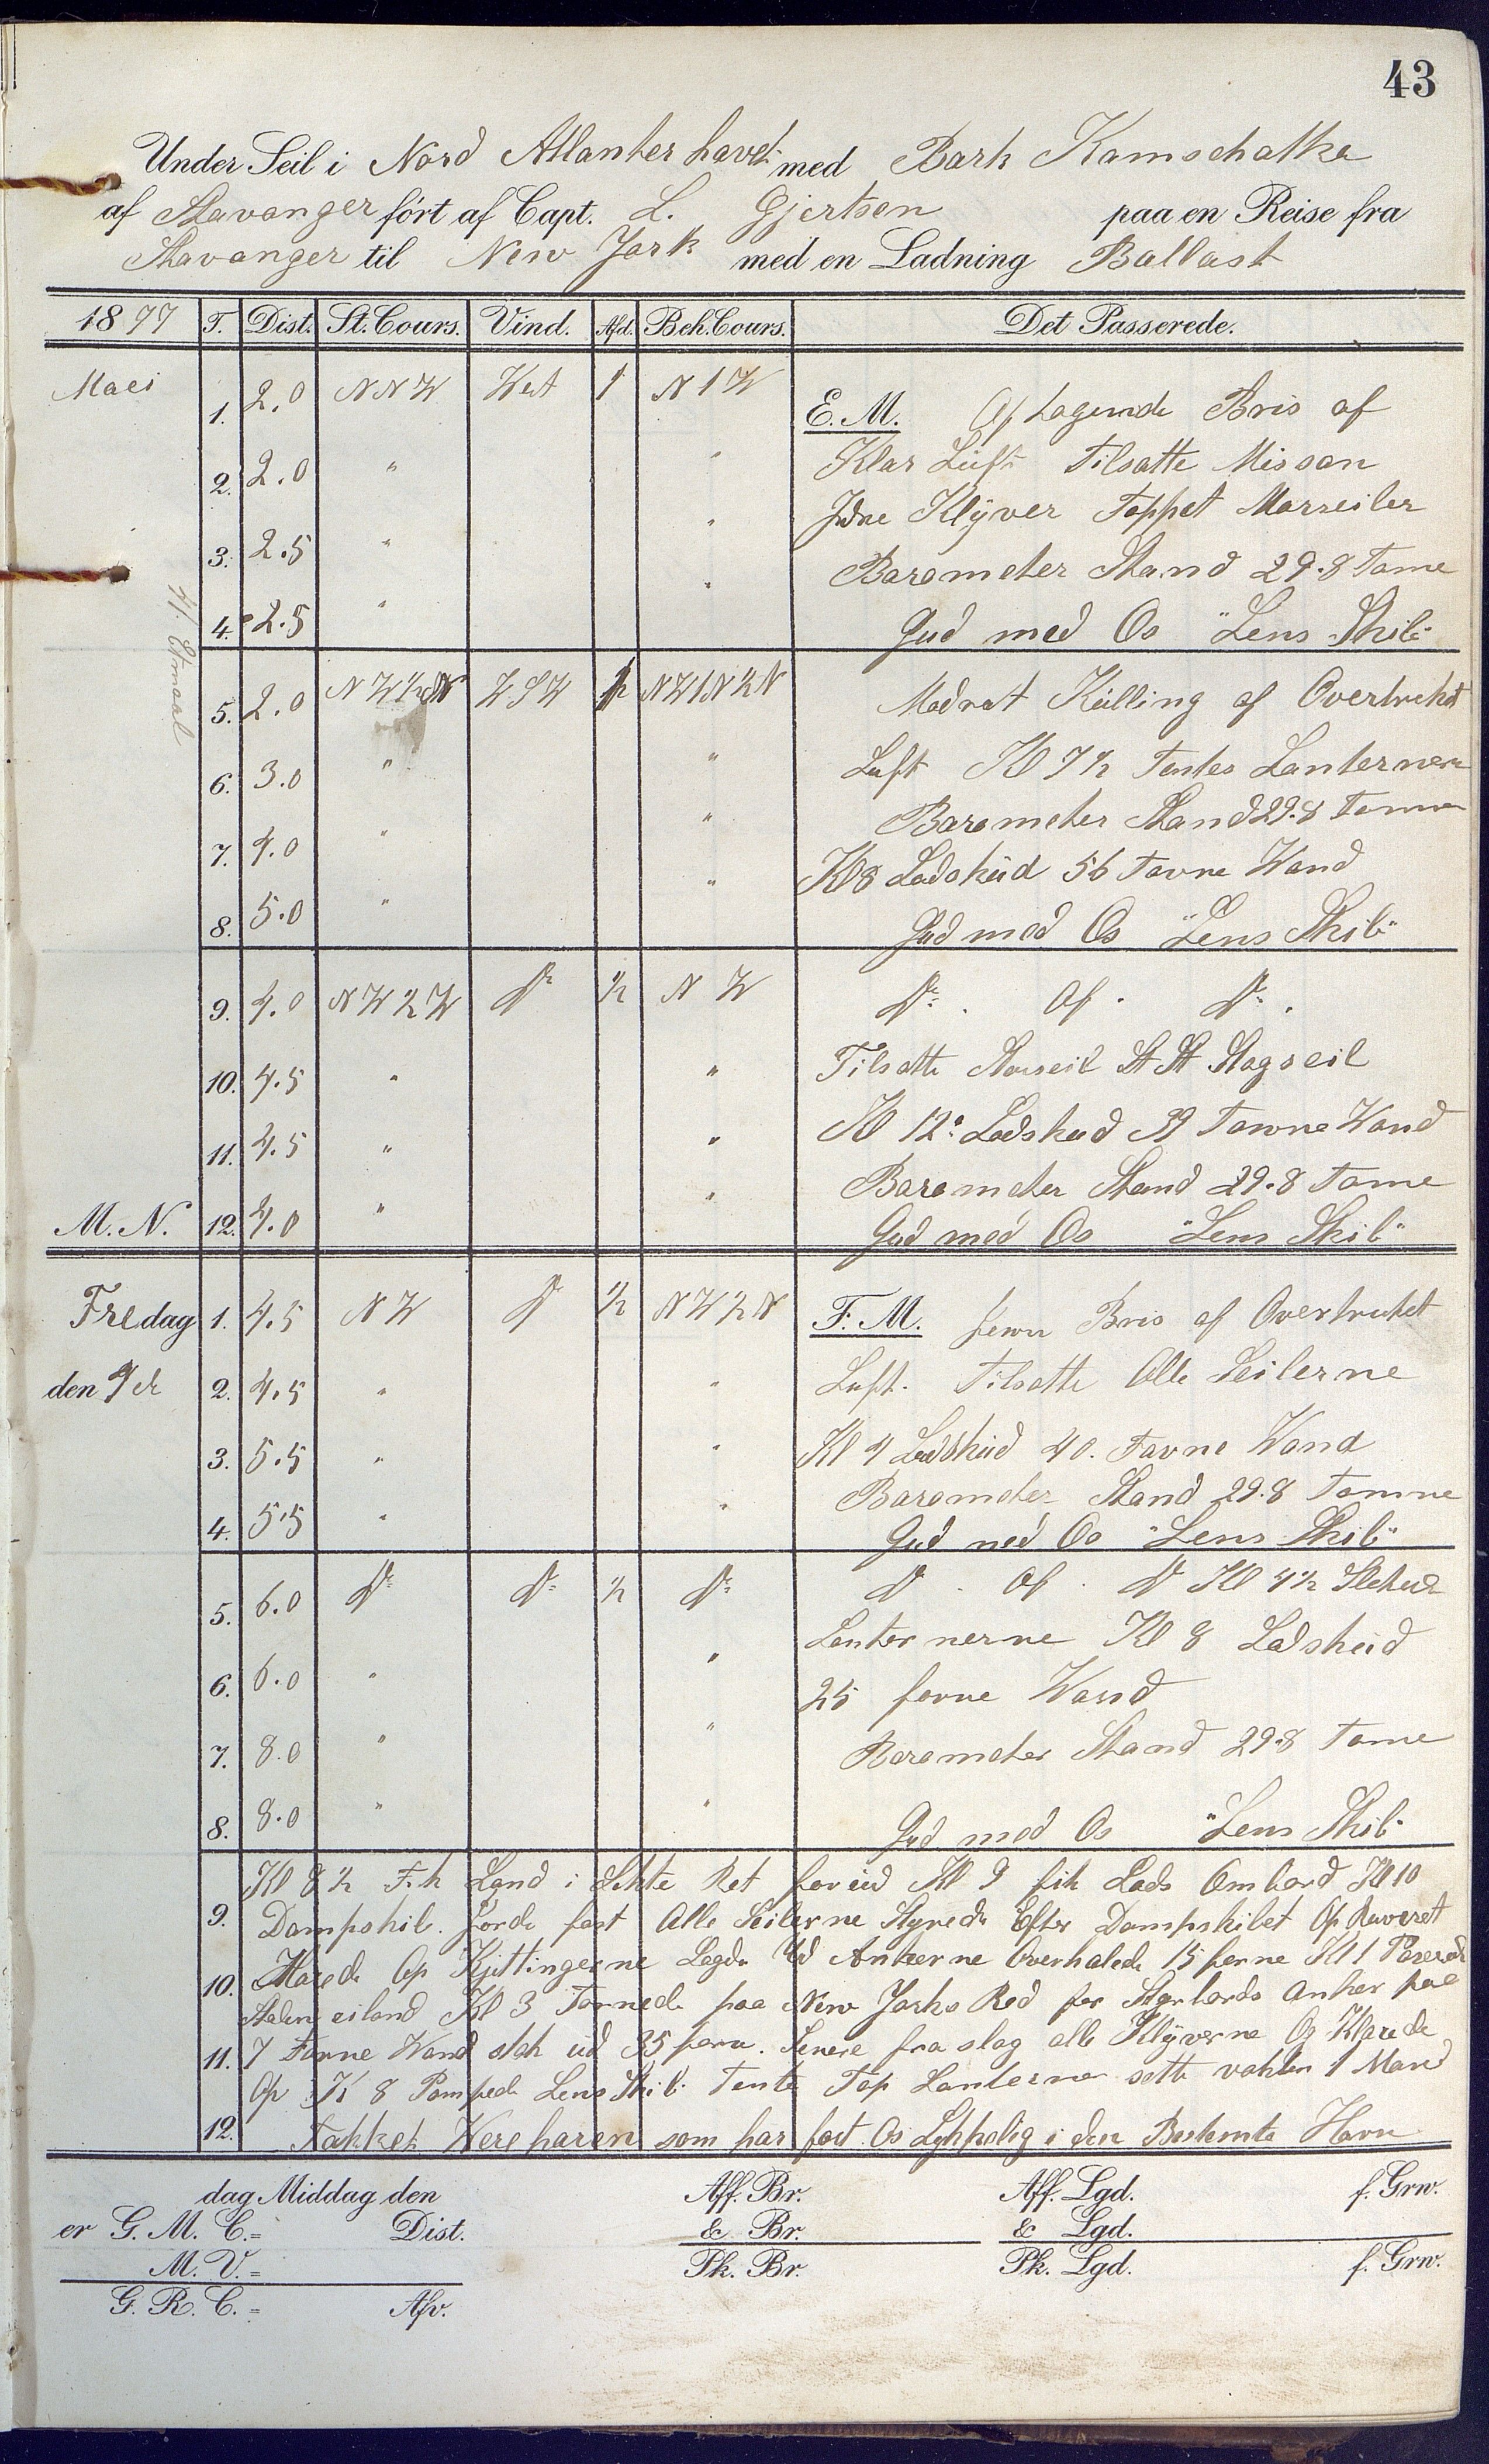 43
Under Seil i Nord Atlanter havet med Bark Kamschatka
af Stavanger fört af Capt. L. Gjertsen paa en Reise fra
Stavanger til New York med en Ladning Ballast
1877 T. Dist. St. Cours. Vind. Afd. Beh. Cours. Det Passerede.
Maei 1. 2.0 NNW West 1 N 1 W E. M. Aftagende Bris af
2. 2.0 " " Klar Lüft Tilsatte Missan
3. 2.5 " " Indre Klÿver Toppet Marseiler
" Barometer Stand 29.8 Tome
4. 2.5 " Gud med Os "Lens Skib"
41. Etmaal
5. 2.0 NW½W WSW ½ NW1N½N Modrat Külling af Overtrukket
6. 3.0 " " Luft Kl 7½ Tentes Lanternerne
7. 4.0 " " Barometer Stand 29.8 Tomme
" Kl 8 Lodsküd 56 Favne Wand
8. 5.0 " Gud med Os "Lens Skib"
9. 4.0 NW½W Do ½ NW Do. Af. Do.
10. 4.5 " " Tilsatte Storseil St St Stagseil
11. 4.5 " " Kl 12. Lodskud 39 Favne Wand
" Barometer Stand 29.8 Tome
M. N. 12. 4.0 " Gud med Os "Lens Skib"
Fredag 1. 4.5 NW Do ½ NW½N F. M. Jevn Bris af Overtrukket
den 4de 2. 4.5 " " Luft. Tilsatte Alle Seilerne
3. 5.5 " " Kl 4 Lodsküd 40. Favne Wand
" Barometer Stand 29.8 Tomme
4. 5.5 " Gud med Os "Lens Skib"
5. 6.0 Do Do ½ Do Do. Af. Do Kl 4½ Slekede
" Lanternerne Kl 8 Lodsküd
6. 6.0 " 25 favne Wand
7. 8.0 " " Barometer Stand 29.8 Tome
8. 8.0 " " Gud med Os "Lens Skib"
Kl 8½ Fik Land i Sigte Ret forüd Kl 9 fik Lods Ombord Kl 10
9. Dampskib. Gjorde fast Alle Seilerne Styrede Efter Dampskibet Op Reweret
10. Op Kjittingerne Lagde Ud Ankerne Overhalede 15 favne Kl 1 Passerede
Staten eiland Kl 3 Tornede paa New Yorks Red for Styrbords Anker paa
11. 7 Favne Wand stak üd 35 favn. Senere fra slag alle Klÿverne Og Klarede
Op Kl 8 Pompede Lens Skib. Tente Top Lanterne sette vakten 1 Mand
12. Takket Were Haren som har ført Os Lykkelig i den Bestemte Havn
dag Middag den Aff. Br. Aff. Lgd. f. Grw.
er G. M. C.= Dist. & Br. & Lgd.
M. V.= Pk. Br. Pk. Lgd. f. Grw.
G. R. C.= Afv.